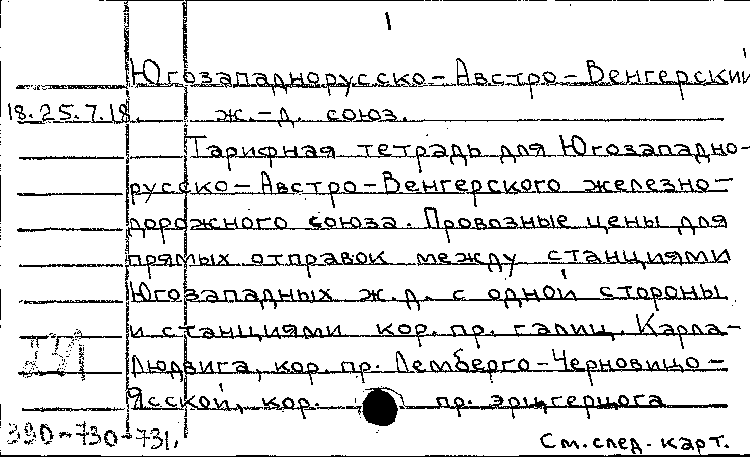 1
Югозападнорусско-Австро-Венгерский
18.25.7.18. ж.-д. союз.
Тарифная тетрадь для Югозападно-
русско-Австро-Венгерского железно-
дорожного союза. Провозные цены для
прямых отправок между станциями
Югозападных ж.д. с одной стороны
и станциями кор. пр. галиц. Карла-
Людвига, кор. пр. Лемберго-Черновицо-
Ясской, кор. пр. эрцгерцога
390-730-731.
См. след. карт.